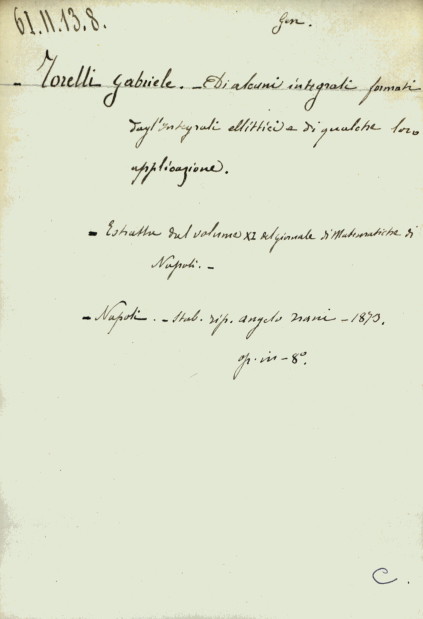 61.11.13.8.
Gen.
- Torelli Gabriele. - Di alcuni integrali formati
dagl'Integrali ellittici e di qualche loro
applicazione.
- Estratto dal volume XI del giornale di Matematiche di
Napoli. -
- Napoli. - Stab. tip. Angelo Trani - 1873.
op. in - 8º.
C.